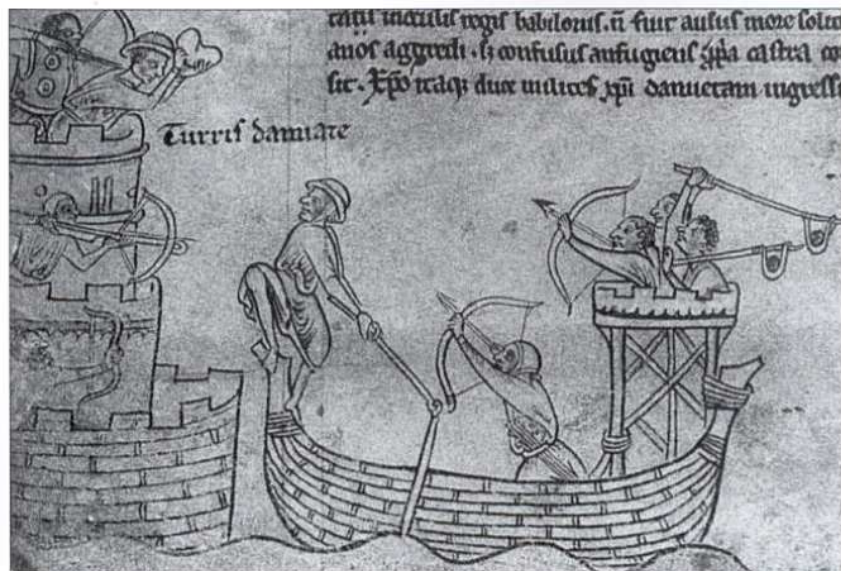 regis babilonis. n̄ fuit ausus more
anos aggredi . sȝ confusus aufugiens castra
sit . Xp̄o itaqȝ duce milites xp̄i damietam ingressi
Turris damiate